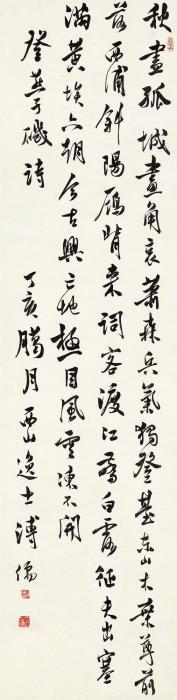 秋盡孤城畫角哀蕭森兵氣獨登臺東山木葉尊前
落西浦斜陽鴈背來詞客渡江白露征夫出塞
滿黃埃六朝今古興亡地極目風雲凍不開
登燕子磯詩
丁亥臘月西山逸士溥儒